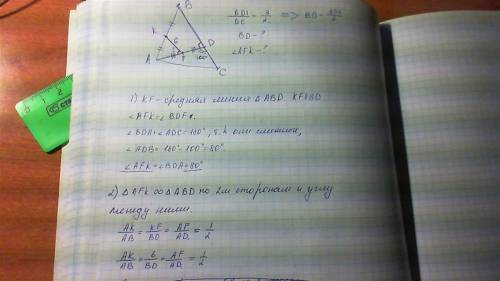 B
K
6
A
F
D
100°
C
BD - ?
∠AFK - ?
1) KF - средняя линия △ABD KF∥BD
∠AFK = ∠BDF.
∠BDA + ∠ADC = 180°, т.к они смежные,
∠ADB = 180° - 100° = 80°.
∠AFK = ∠BDA = 80°
2) △AFK ∞ △ABD по 2м сторонам и углу
между ними.
AK/AB = KF/BD = AF/AD = 1/2
AK/AB = 6/BD = AF/AD = 1/2
0 1 2